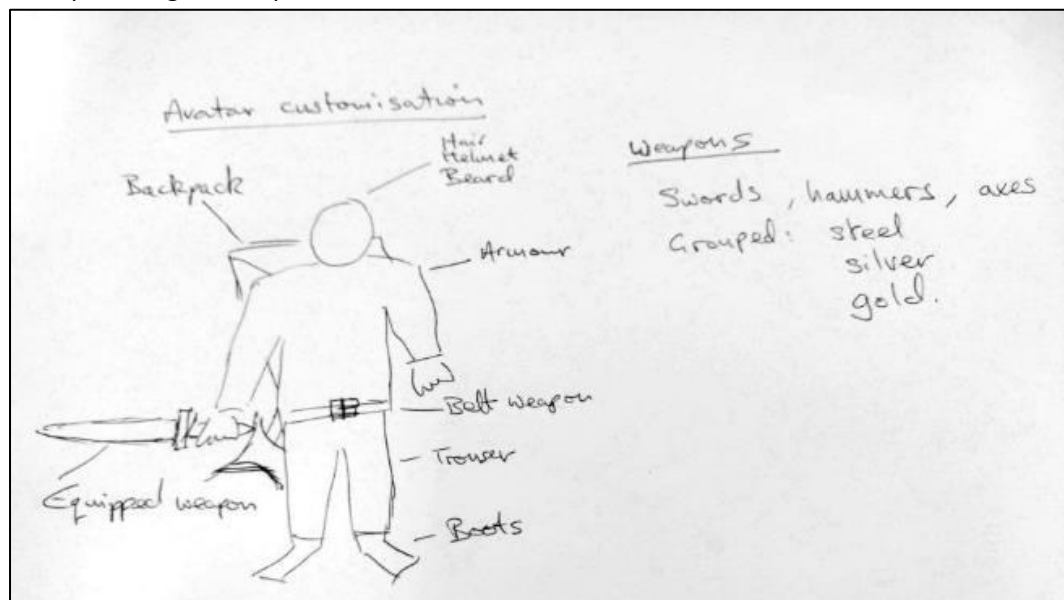 Avatar customisation
Hair
Helmet
Beard
Backpack
Armour
Belt weapon
Trouser
Boots
Equipped weapon
Weapons
Swords, hammers, axes
Grouped: steel
silver
gold.